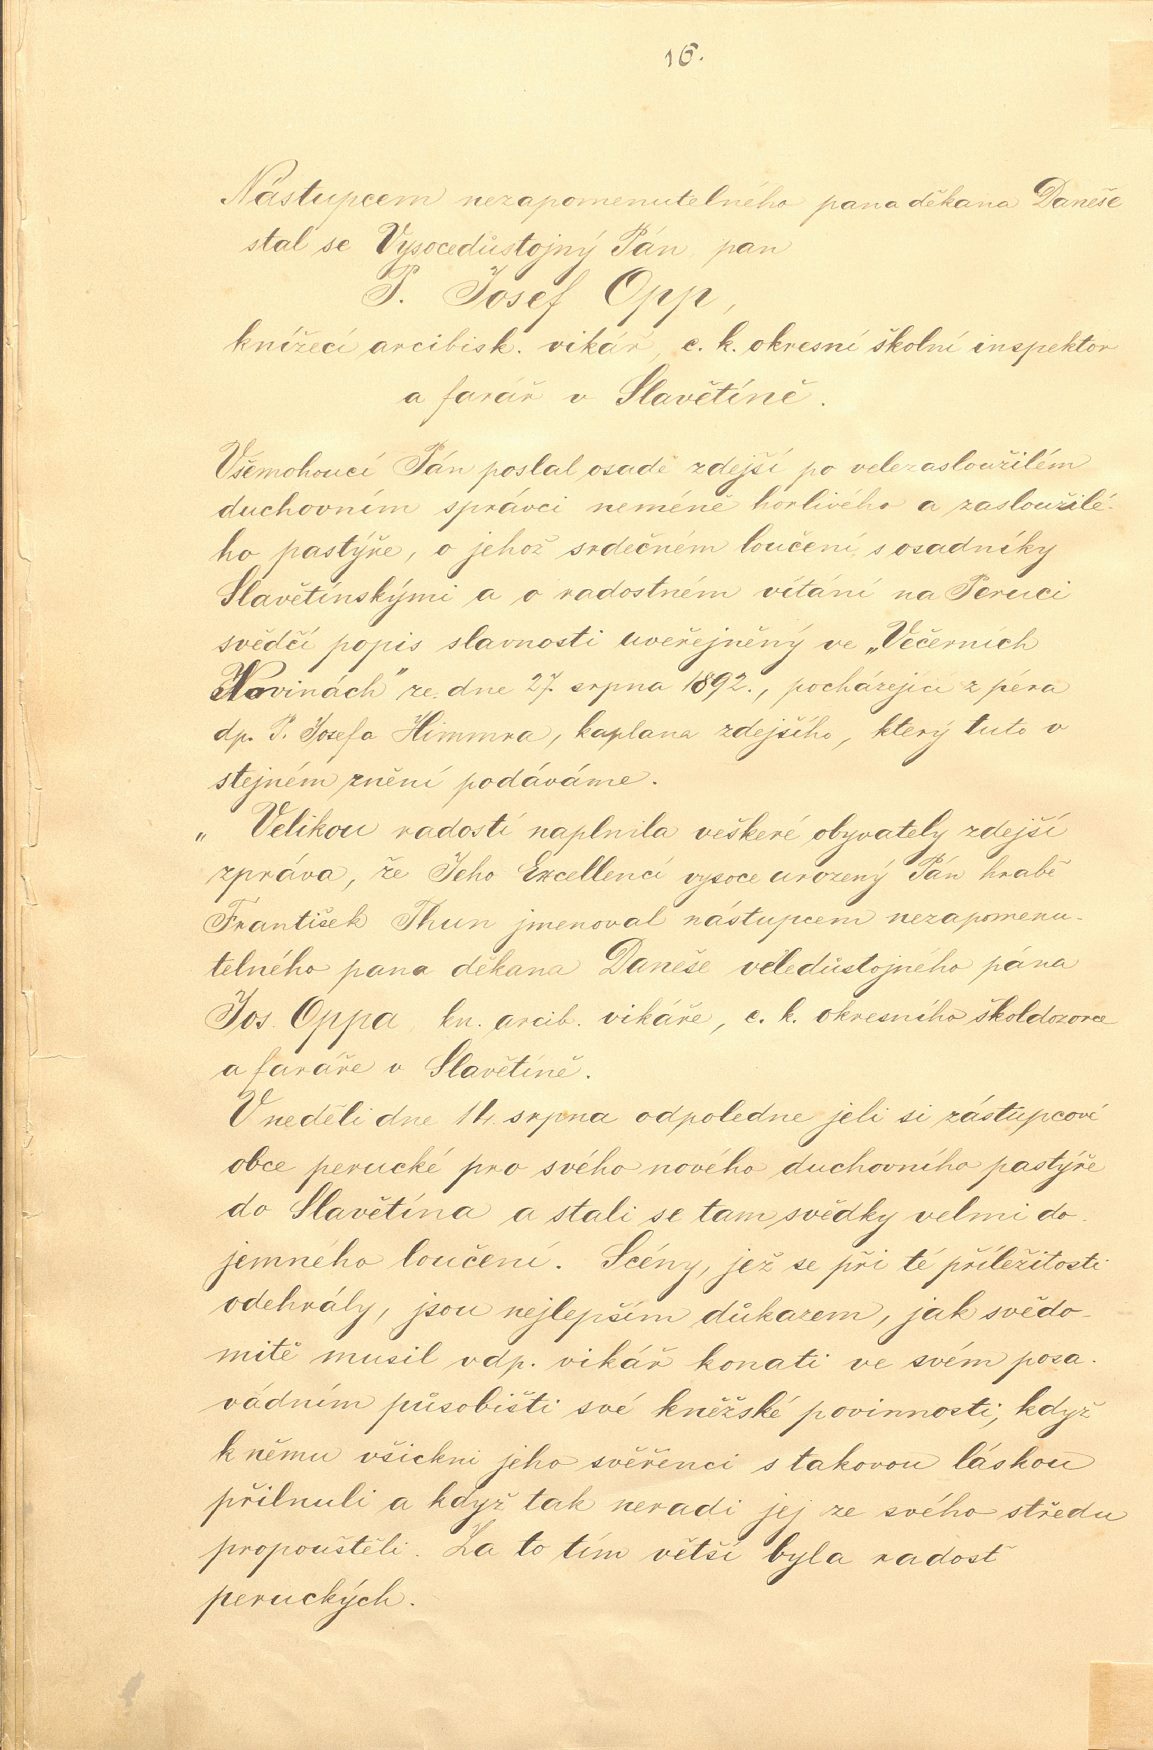 16.
Nástupcem nezapomenutelného pana děkana Daneše
stal se Vysocedůstojný Pán, pan
P. Josef Opp,
knížecí arcibisk. vikář, c. k. okresní školní inspektor
a farář v Slavětíně.
Všemohoucí Pán poslal osadě zdejší po velezasloužilém
duchovním správci neméně horlivého a zasloužilé-
ho pastýře, o jehož srdečném loučení s osadníky
Slavětínskými a o radostném vítání na Peruci
svědčí popis slavnosti uveřejněný ve „Večerních
Novinách" ze dne 27. srpna 1892., pocházející z péra
dp. P. Josefa Himmra, kaplana zdejšího, který tuto v
stejném znění podáváme.
„ Velikou radostí naplnila veškeré obyvately zdejší
zpráva, že Jeho Excellencí vysoce urozený Pán hrabě
František Thun jmenoval nástupcem nezapomenu-
telného pana děkana Daneše veledůstojného pána
Jos. Oppa kn. arcib. vikáře, c. k. okresního školdozorce
a faráře v Slavětíně.
V neděli dne 14. srpna odpoledne jeli si zástupcové
obce perucké pro svého nového duchovního pastýře
do Slavětína a stali se tam svědky velmi do-
jemného loučení. Scény, jež se při té příležitosti
odehrály, jsou nejlepším důkazem, jak svědo-
mitě musil vdp. vikář konati ve svém posa-
vádním působišti své kněžské povinnosti, když
k němu všickni jeho svěřenci s takovou láskou
přilnuli a když tak neradi jej ze svého středu
propouštěli. Za to tím větší byla radost
peruckých.